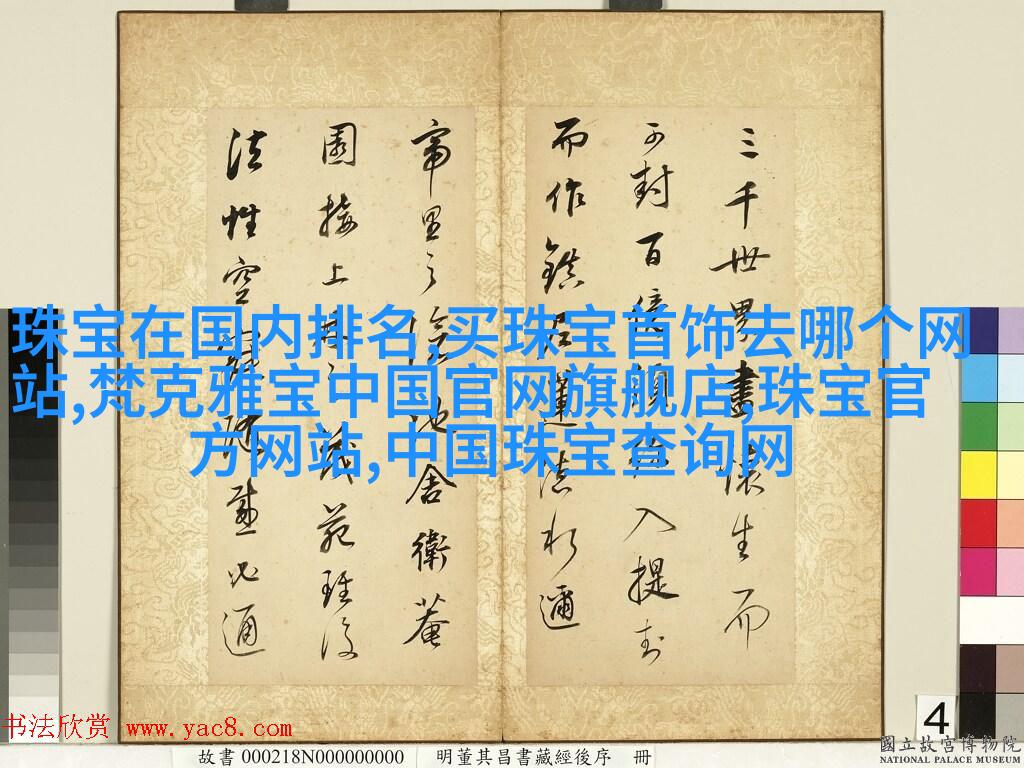 珠宝在国内排名,买珠宝首饰去哪个网
站,梵克雅宝中国官网旗舰店,珠宝官
方网站,中国珠宝查询网
三千世界懷生而
可封百億入提封
而作鎮
帝里之池舍衛菴
園接上林之苑
法性空
书法欣赏 www.yac8.com
故書 000218N000000000 明董其昌書藏經後序 冊
4
國立故宮博物院
NATIONAL PALACE MUSEUM